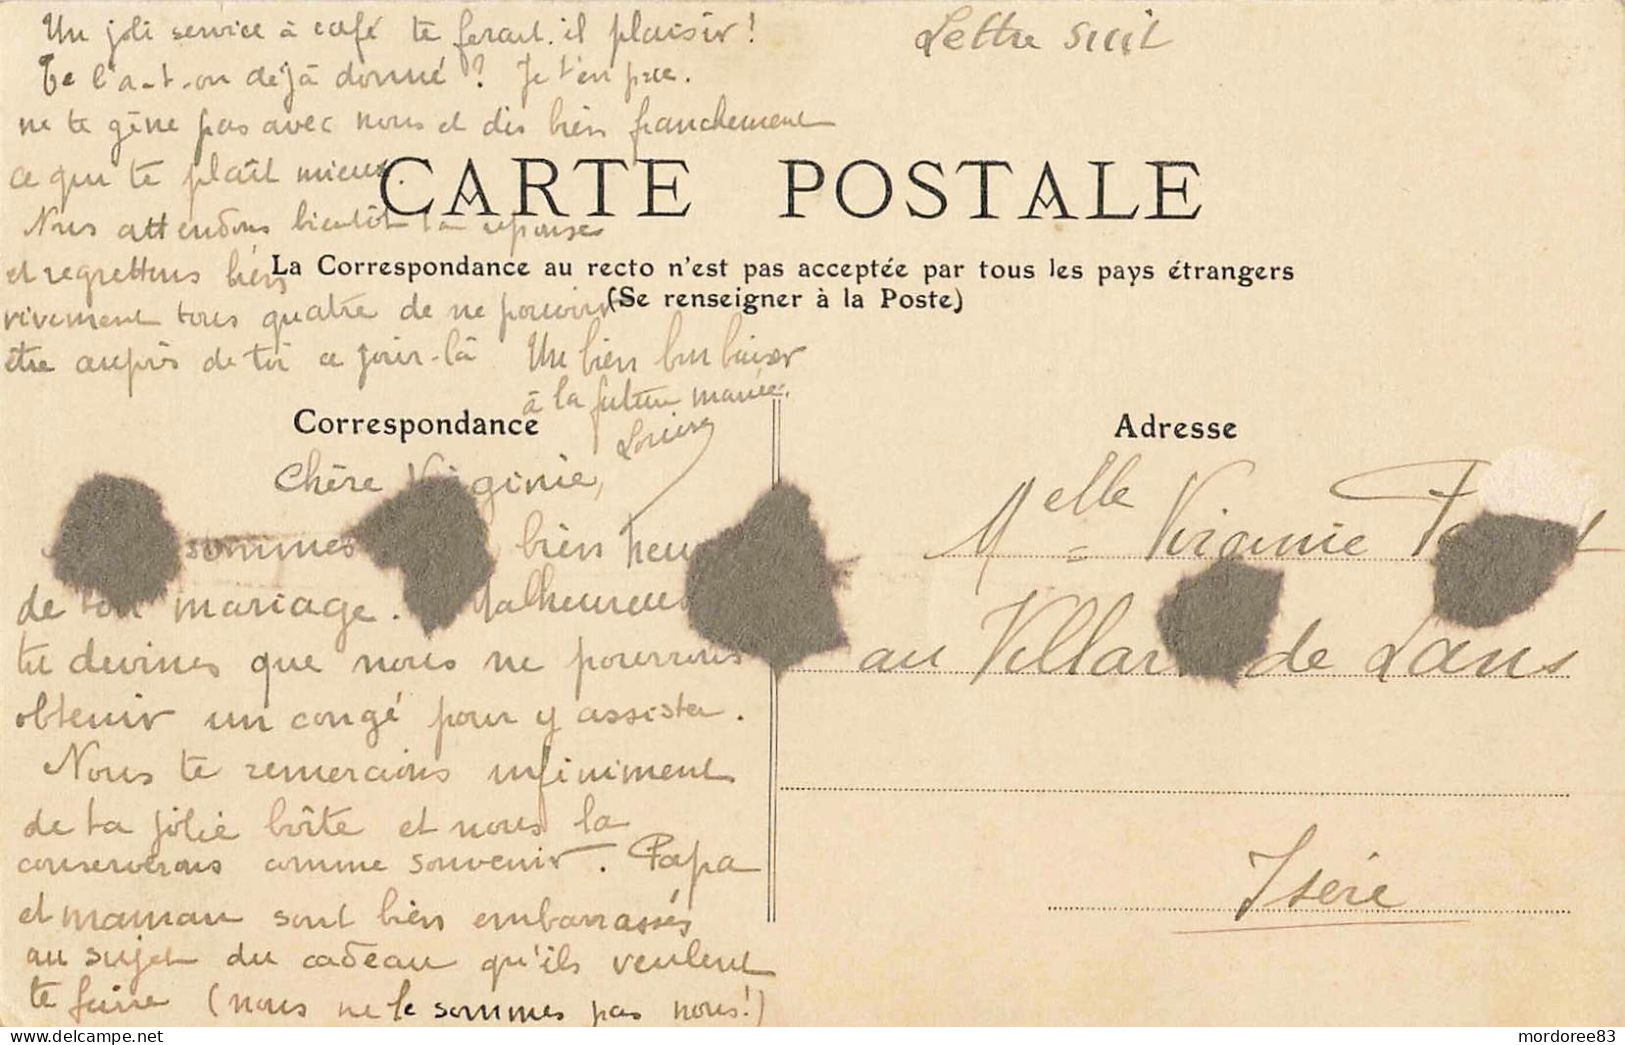 Un joli service à café te ferait-il plaisir !
Te l'a-t-on déjà donné ? Je t'en prie.
ne te gêne pas avec nous et dis bien franchement
ce qui te plaît mieux.
Nous attendons bientôt ta réponse
et regrettons bien
vivement tous quatre de ne pouvoir
être auprès de toi ce jour-là Un bien bon baiser
à la future mariée.
Louise
Lettre suit
CARTE POSTALE
La Correspondance au recto n'est pas acceptée par tous les pays étrangers
(Se renseigner à la Poste)
Correspondance
Chère Virginie,
sommes bien
de ton mariage.
tu devines que nous ne pourrons
obtenir un congé pour y assister.
Nous te remercions infiniment
de ta jolie boîte et nous la
conserverons comme souvenir. Papa
et maman sont bien embarrassés
au sujet du cadeau qu'ils veulent
te faire (nous ne le sommes pas nous!)
Adresse
Melle Virginie
au Villard de Lans
Isère
mordoree83